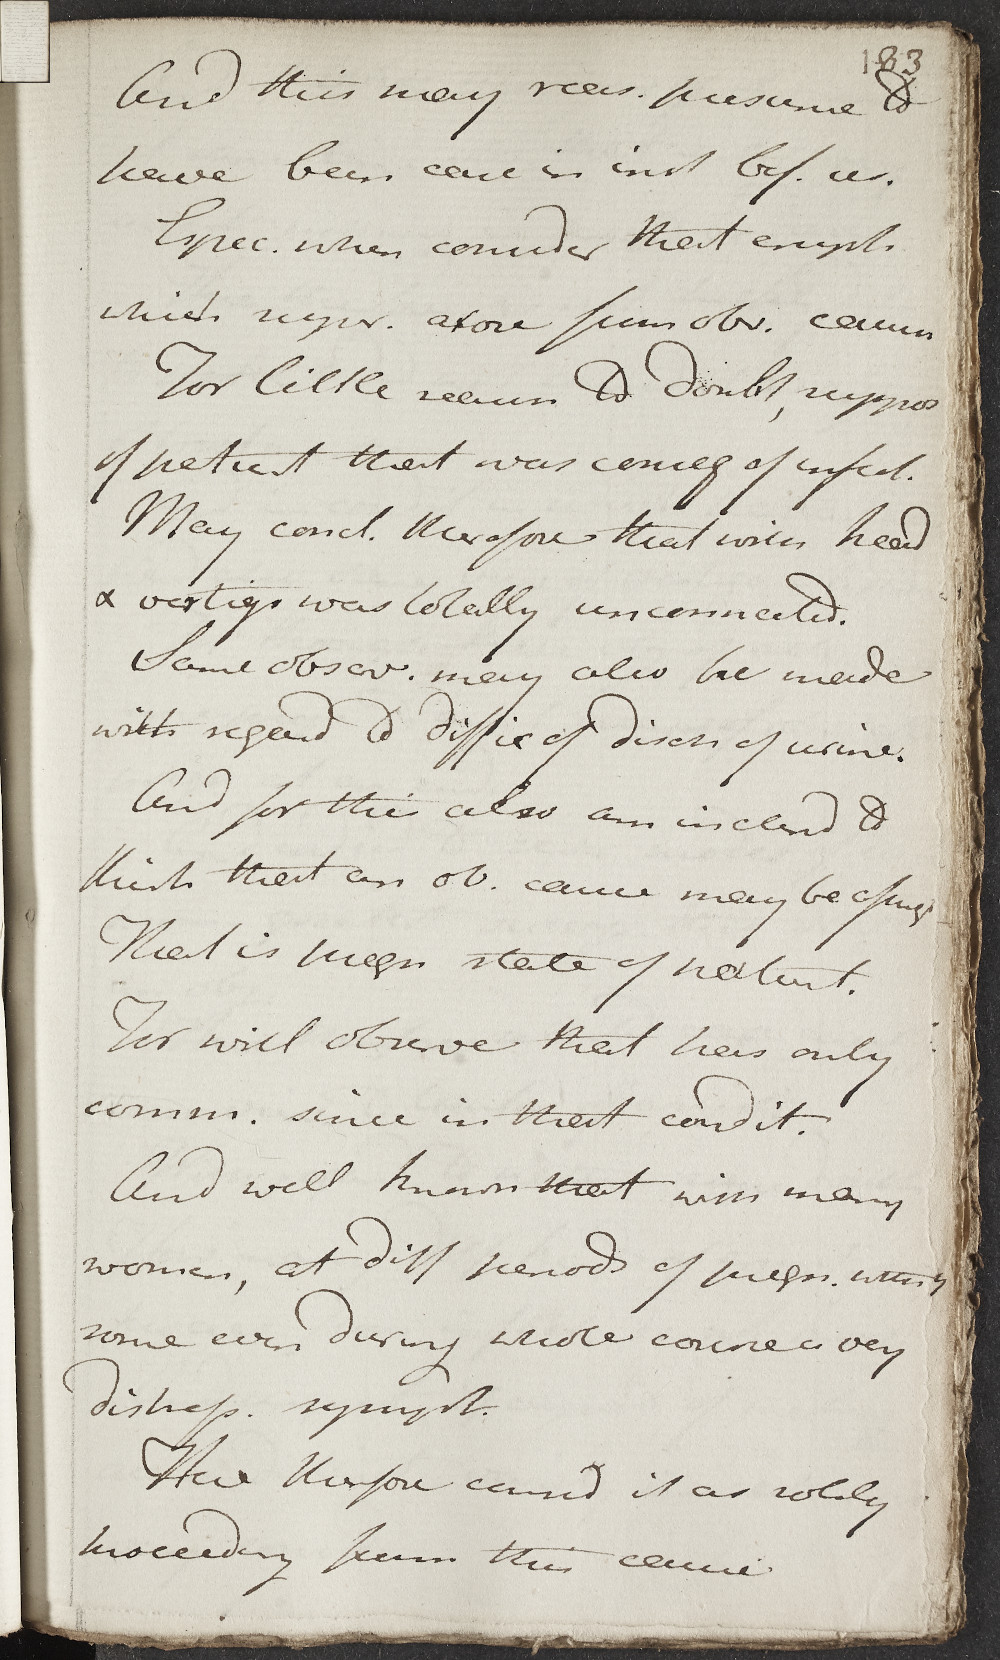 133
And this may reas. presume to
have been case in inst bef. us.
Espec. when consider that erupt.
which suppr. arose from obv. cause
For little reason to doubt, suppos
of patient that was conseq of infect.
May concl. therefore that with head
& vertigo was totally unconnected.
Same observ. may also be made
with regard to diffic of disch of urine.
And for this also am inclined to
think that an ob. cause may be assig
That is pregn state of patient.
For will observe that has only
comm. since in that condit.
And well known that with many
women, at diff periods of pregn. with
some even during whole course a very
distress. sympt.
Here therefore consid it as solely
proceeding from this cause